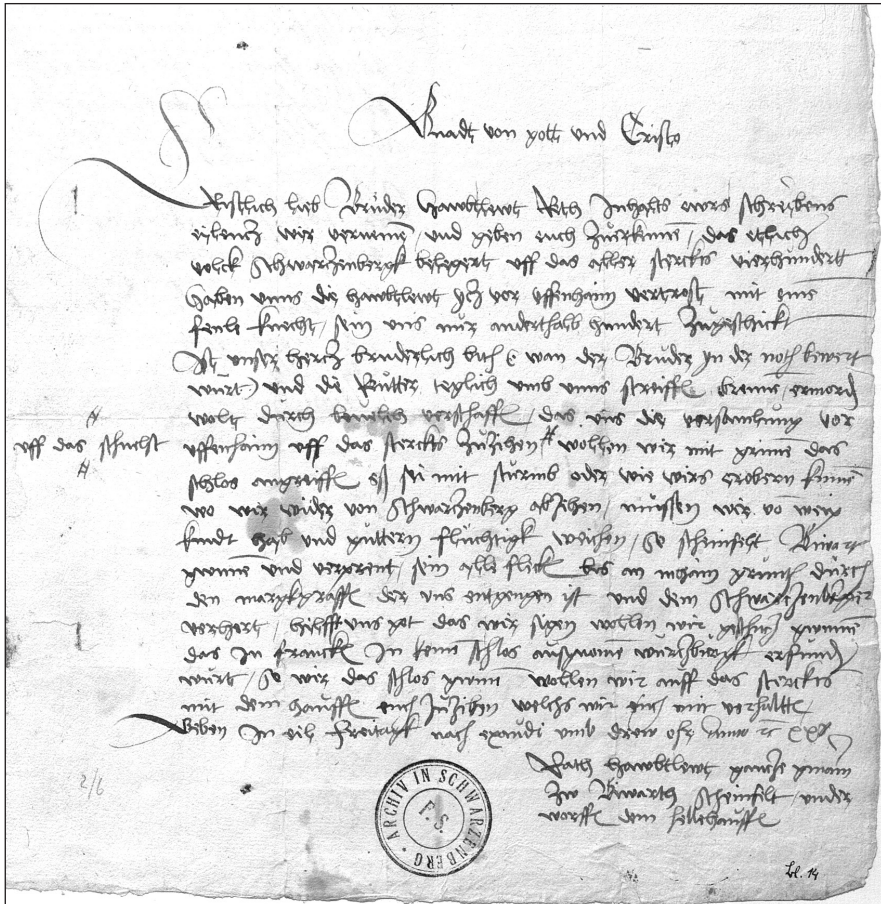 Gnadt von gott und Cristo
Cristlich lieb Bruder Hawbtlewt Reth Inhalts ewrs schreybens
eylencz wir vernumen, und geben euch zuerkennen, das etlich
volck Schwarzenbergk belegert uff das aller sterckts vierhundertt
haben unns die hawbtlewt ycz vor uffenhaim vertrost mit eim
fenle knecht, sein uns nur anderthalb hundert zugeschickt
Ist unser hercz bruderlich bith (wan der Bruder in der noth bewert
wurt) und die Reutter teglich umb unns streiffe brenne ermord
wolt durch bevelch verschaffe, das uns die versamlung vor
uffenhaim uff das sterckts zuzihen wollen wir mit grimme das
uff das schnelst
schlos angreiffe es sei mit sturmb oder wie wirs erobern kunne
wo wir wider von Schwarzenberg abzihen, mussen wir vo weip
kindt hab und guttern fluchtigk weichen, so scheinfelt Biwart
gwunne und verprent, sein alle fleck bis an
den margkgraffe der uns entgengen ist und dem Schwarzenberger
verhert, hilfft uns got das wir sigen wollen wir geschucz gwinne
das In francke In keine schlos ausgnome wurczburgk erfund
wurt, so wir das schlos gwinne wollen wir auff das sterckts
mit dem hauffe euch zuzihen welchs wir euch nit verhalte,
Geben In eil Freitagk nach exaudi umb drew ofr Anno
Rath hawbtlewt gancze gmain
zw Biwarth Scheinfelt under
worffe dem hellehauffe
2/6
ARCHIV IN SCHWARZENBERG
F. S.
Bl. 14